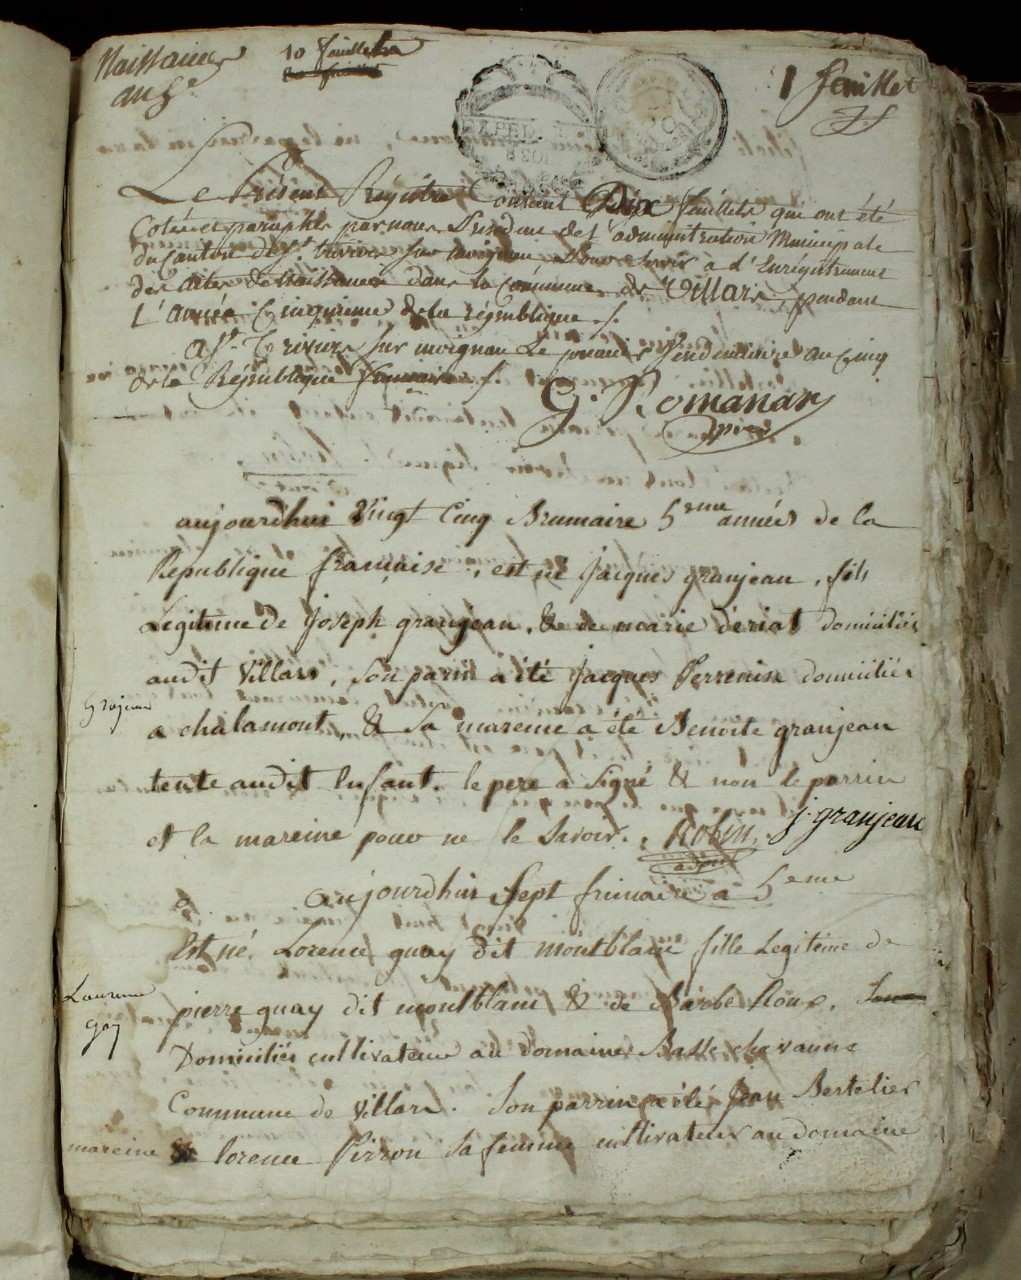 Naissances
an 5e
10 feuillets
1 feuillet
Le Présent Régistre Contient Dix feuillets qui ont été
Cotés et paraphés par nous Président de l'administration Municipale
du Canton de St. trivier sur moignan Pour servir a l'Enrégistrement
des actes de Naissances dans la Commune de Villars pendant
L'année Cinquieme de la république ./.
a St. Trivier sur moignan Le premier Vendemiaire an Cinq
de la République francaise ./.
G. Romanans
aujourdhui Vingt Cinq Brumaire 5eme année de la
Republique française, est né Jacques granjean, fils
Légitime de Joseph granjean, & de marie deriat domiciliés
audit Villars, Son parin a été Jacques Perrenin domicilié
Grojean
a chalamont, & Sa mareine a été Benoite granjean
tente audit Enfant. le pere a Signé & non le parrin
et la mareine pour ne le Savoir. Robin. j. granjean
aujourdhui Sept frimaire a 5eme
Est né, Lorence quay dit montblanc fille Legitime de
Laurence
Gay
pierre quay dit montblanc & de Barbe Roux,
Domiciliés cultivateurs au domaine Basse chavanne
Commune de Villars. Son parrin a été Jean Bertelier
mareine & lorence Pirron Sa femme cultivateurs au domaine